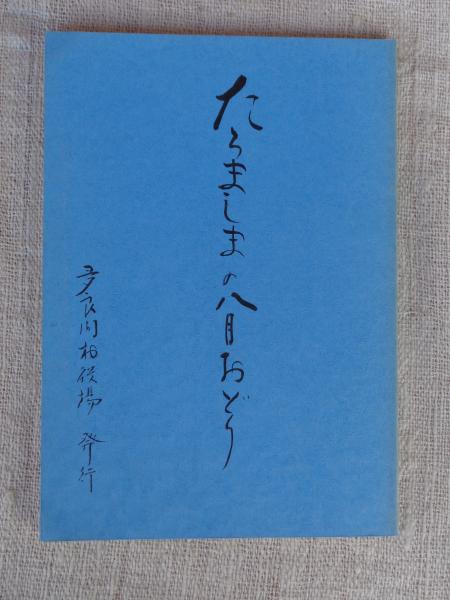 たらましまの八月おどり
多良間村役場 発行